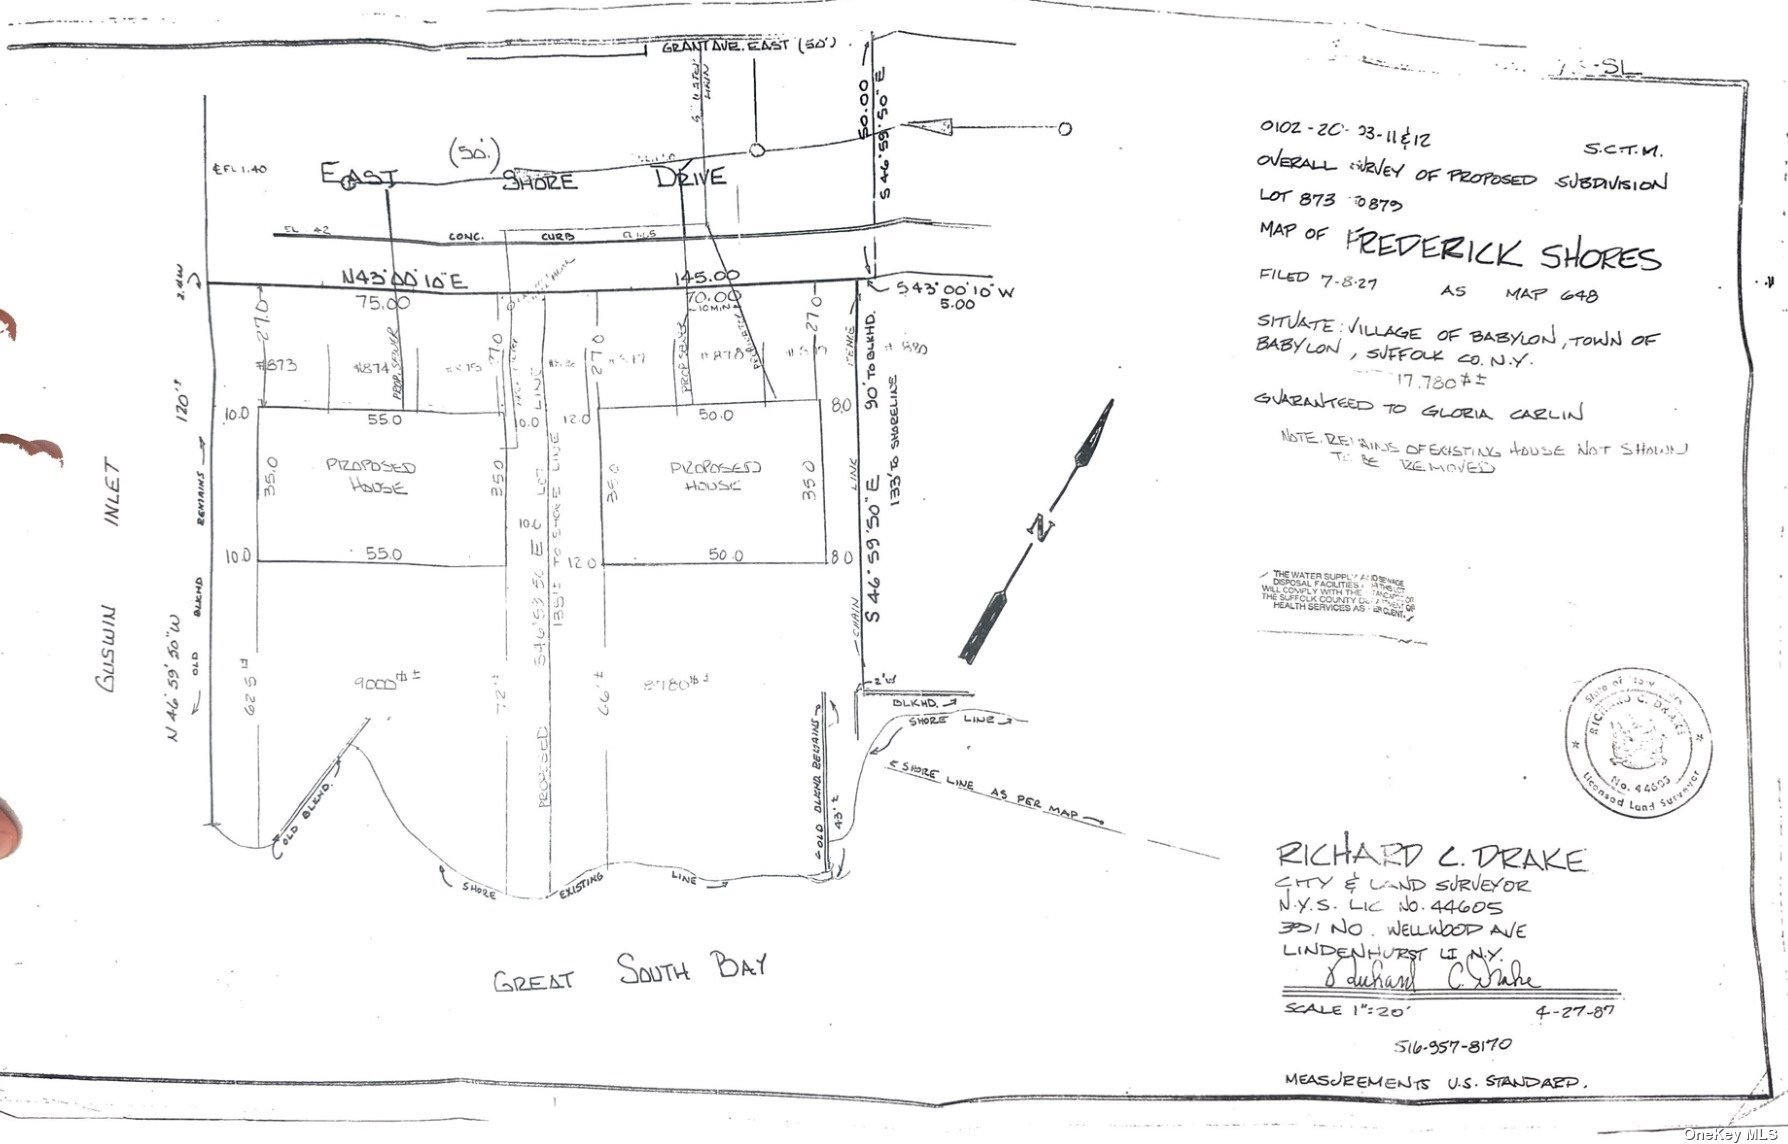 GRANT AVE. EAST (50')
50.00
S 46°59'50" E
(50')
EAST SHORE DRIVE
CONC. CURB
N43°00'10"E
145.00
75.00
70.00
10 MIN
S 43°00'10" W
5.00
27.0
27.0
27.0
#873
#874
PROP. SEWER
#878
10.0
55.0
12.0
50.0
8.0
PROPOSED
HOUSE
35.0
35.0
PROPOSED
HOUSE
35.0
35.0
10.0
55.0
12.0
50.0
8.0
120'±
OLD BLKHD REMAINS
N 46° 59' 50" W
GUSWIN INLET
CHAIN LINK FENCE
90' TO BLKHD.
133' TO SHORELINE
S 46° 59' 50" E
PROPOSED S46°59'50" E LOT LINE
9000#±
8780#±
72'±
66'±
2'W
BLKHD.
SHORE LINE
SHORE LINE AS PER MAP
OLD BLKHD REMAINS
43'±
OLD BLKHD.
SHORE EXISTING LINE
GREAT SOUTH BAY
N
S.C.T.M.
OVERALL SURVEY OF PROPOSED SUBDIVISION
LOT 873
MAP OF FREDERICK SHORES
FILED 7-8-27 AS MAP 648
SITUATE: VILLAGE OF BABYLON, TOWN OF
BABYLON, SUFFOLK CO. N.Y.
17,780#±
GUARANTEED TO GLORIA CARLIN
NOTE: REMAINS OF EXISTING HOUSE NOT SHOWN
TO BE REMOVED
THE WATER SUPPLY AND SEWAGE
DISPOSAL FACILITIES
WILL COMPLY WITH THE
THE SUFFOLK COUNTY DEPARTMENT OF
HEALTH SERVICES AS
State of New York
RICHARD C. DRAKE
No. 44605
Licensed Land Surveyor
RICHARD C. DRAKE
CITY & LAND SURVEYOR
N.Y.S. LIC No. 44605
391 NO. WELLWOOD AVE
LINDENHURST LI N.Y.
Richard C. Drake
SCALE 1"=20' 4-27-87
516-957-8170
MEASUREMENTS U.S. STANDARD.
OneKey MLS